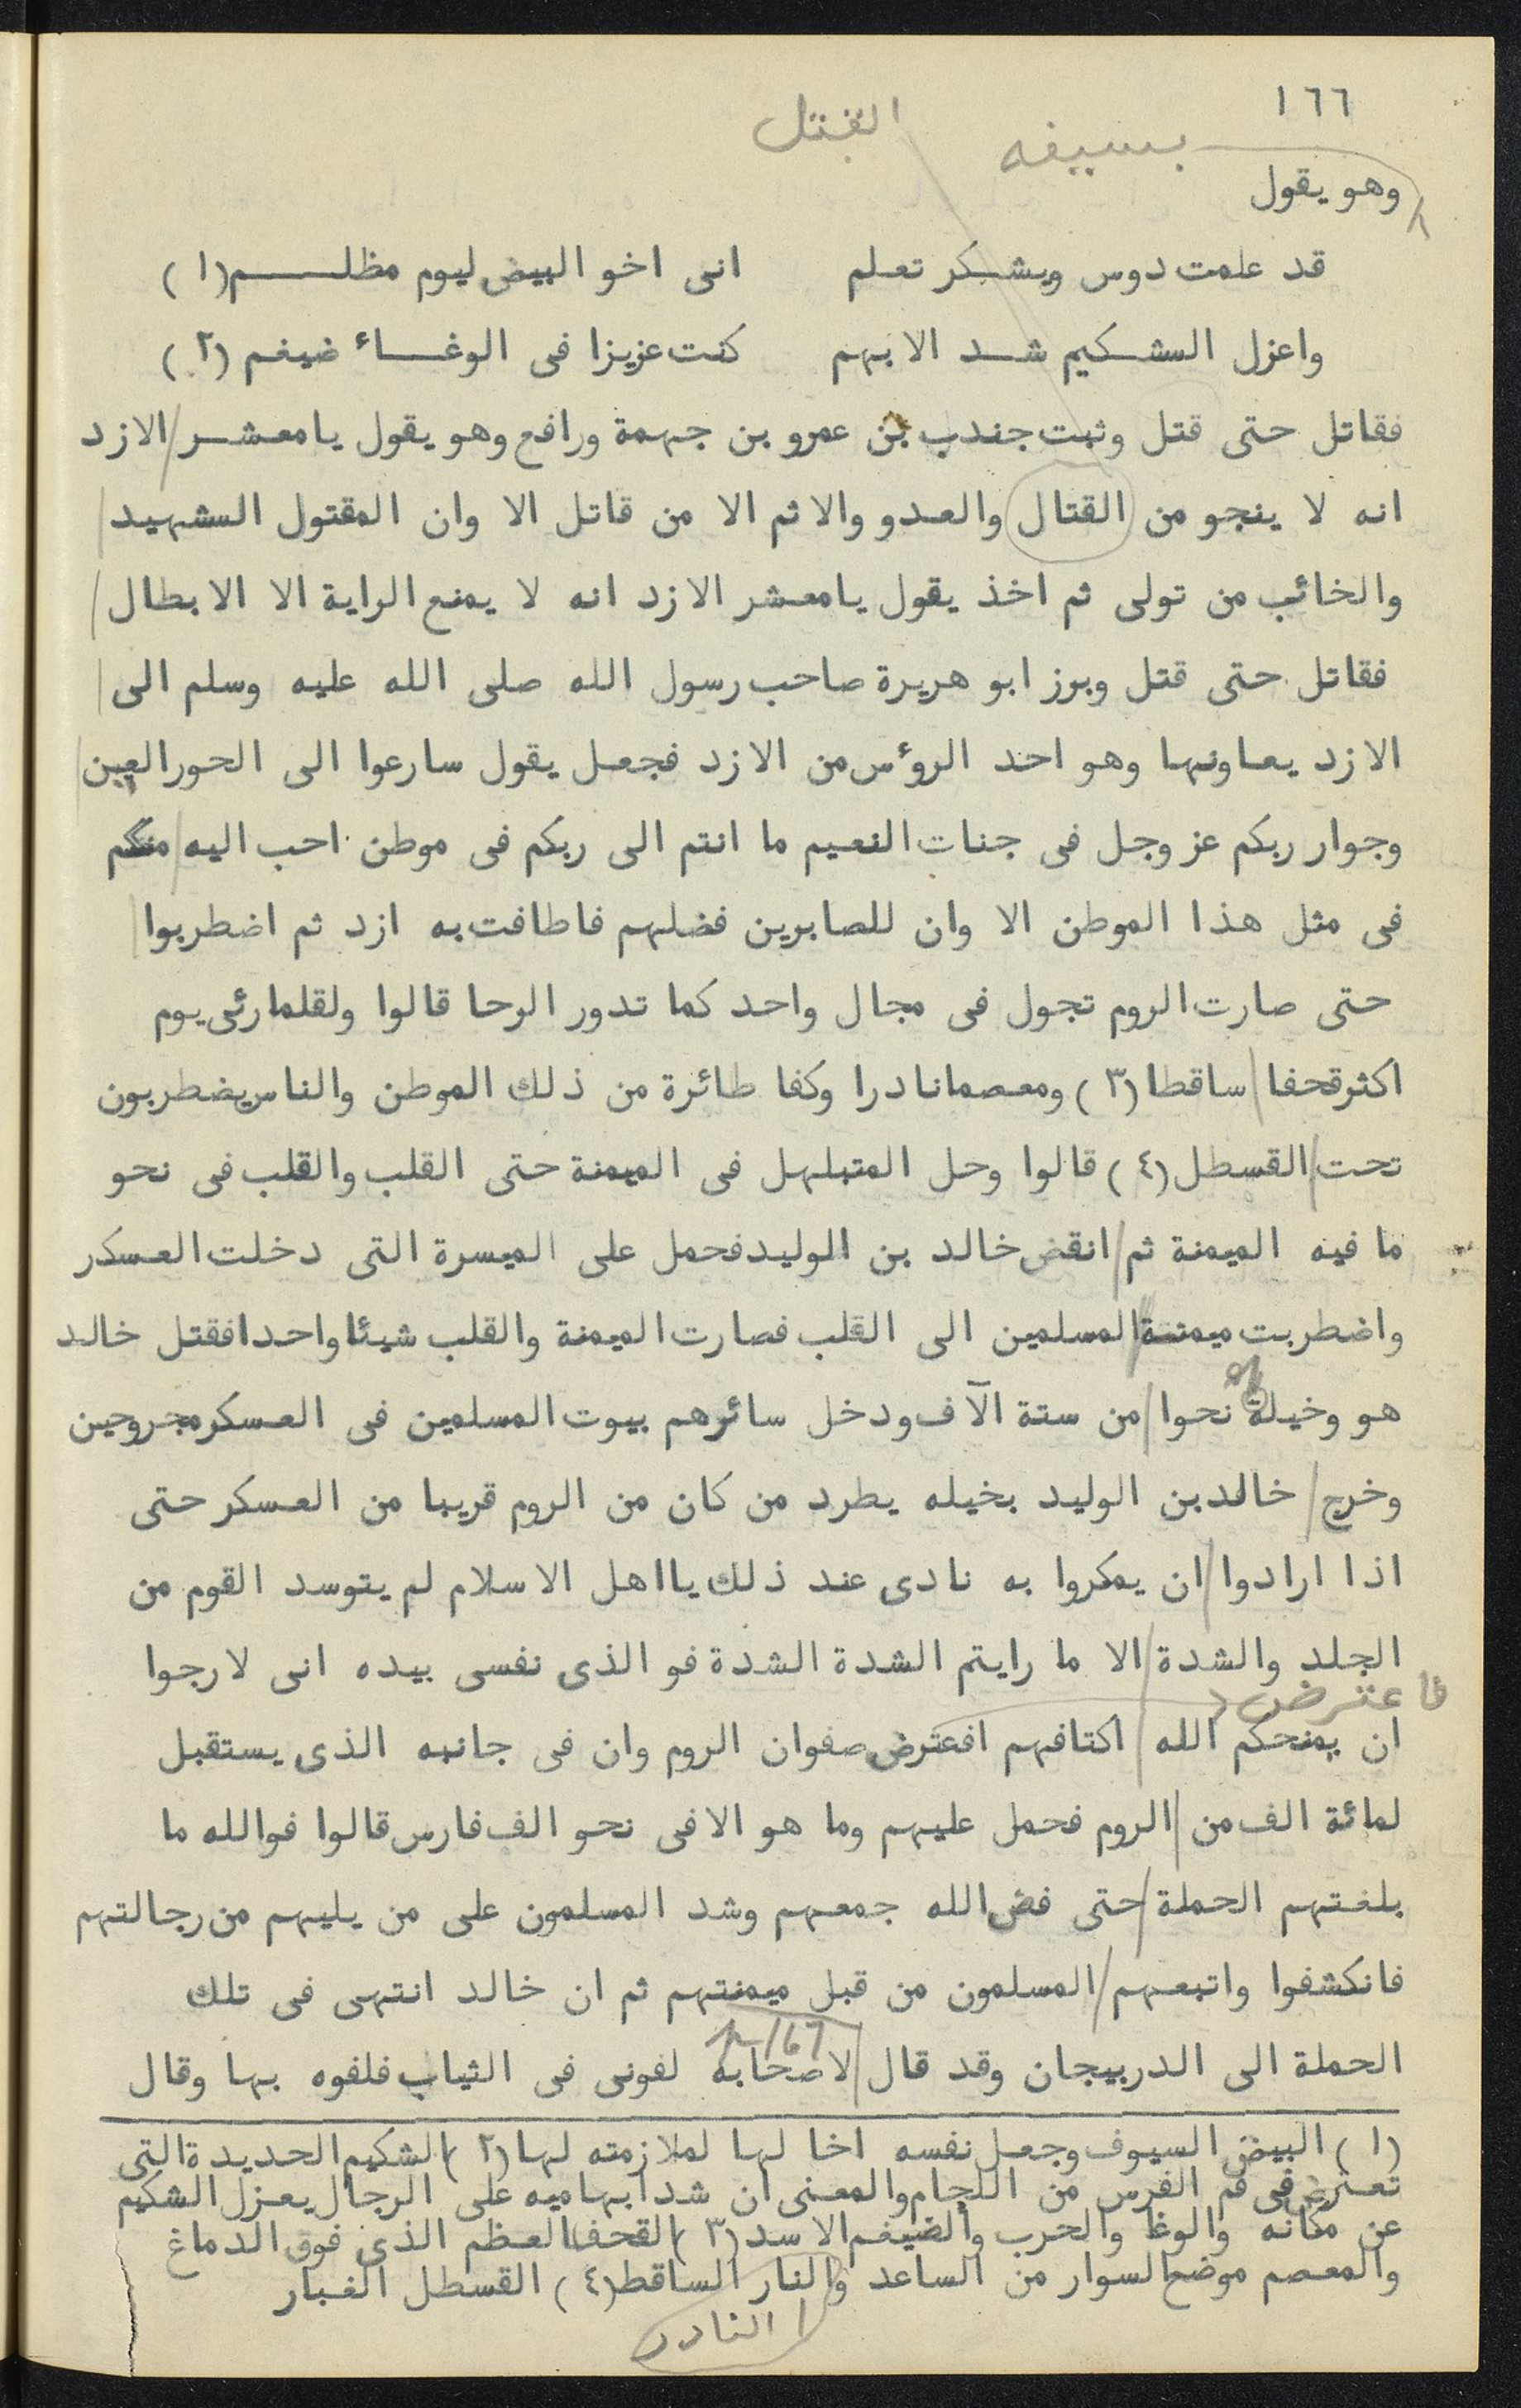 ١٦٦
بسيفه القتل
وهو يقول
قد علمت دوس ويشكر تعلم انى اخو البيض ليوم مظلـــم (١)
واعزل الشكيم شد الابهم كنت عزيزا فى الوغاء ضيغم (٢)
فقاتل حتى قتل وثبت جندب بن عمرو بن جهمة ورافع وهو يقول يا معشر / الازد
انه لا ينجو من القتال والعدو والاثم الا من قاتل الا وان المقتول الشهيد /
والخائب من تولى ثم اخذ يقول يا معشر الازد انه لا يمنع الراية الا الابطال /
فقاتل حتى قتل وبرز ابو هريرة صاحب رسول الله صلى الله عليه وسلم الى /
الازد يعاونها وهو احد الرؤس من الازد فجعل يقول سارعوا الى الحور العين
وجوار ربكم عز وجل فى جنات النعيم ما انتم الى ربكم فى موطن احب اليه / منكم
فى مثل هذا الموطن الا وان للصابرين فضلهم فاطافت به ازد ثم اضطربوا
حتى صارت الروم تجول فى مجال واحد كما تدور الرحا قالوا ولقلما رئى يوم
اكثر قحفا / ساقطا (٣) ومعصما نادرا وكفا طائرة من ذلك الموطن والناس يضطربون
تحت / القسطل (٤) قالوا وحل المتبلهل فى الميمنة حتى القلب والقلب فى نحو
ما فيه الميمنة ثم / انقض خالد بن الوليد فحمل على الميسرة التى دخلت العسكر
واضطربت ميمنة المسلمين الى القلب فصارت الميمنة والقلب شيئا واحدا فقتل خالد
هو وخيلة نحوا / من ستة الآف ودخل سائرهم بيوت المسلمين فى العسكر مجروحين
وخرج / خالد بن الوليد بخيله يطرد من كان من الروم قريبا من العسكر حتى
اذا ارادوا / ان يمكروا به نادى عند ذلك يا اهل الاسلام لم يتوسد القوم من
الجلد والشدة / الا ما رايتم الشدة الشدة فو الذى نفسى بيده انى لارجوا
فاعترض
ان يمنحكم الله / اكتافهم افعترض صفوان الروم وان فى جانبه الذى يستقبل
لمائة الف من / الروم فحمل عليهم وما هو الا فى نحو الف فارس قالوا فوالله ما
بلغتهم الحملة / حتى فض الله جمعهم وشد المسلمون على من يليهم من رجالتهم
فانكشفوا واتبعهم / المسلمون من قبل ميمنتهم ثم ان خالد انتهى فى تلك
p 167
الحملة الى الدربيجان وقد قال / لاصحابه لفونى فى الثياب فلفوه بها وقال
(١) البيض السيوف وجعل نفسه اخا لها لملازمته لها (٢) الشكيم الحديدة التى
تعترض فى فم الفرس من اللجام والمعنى ان شد ابهاميه على الرجال يعزل الشكيم
عن مكانه والوغا والخرب والضيغم الاسد (٣) القحف العظم الذى فوق الدماغ
والمعصم موضع السوار من الساعد والنار الساقط (٤) القسطل الغبار
النادر